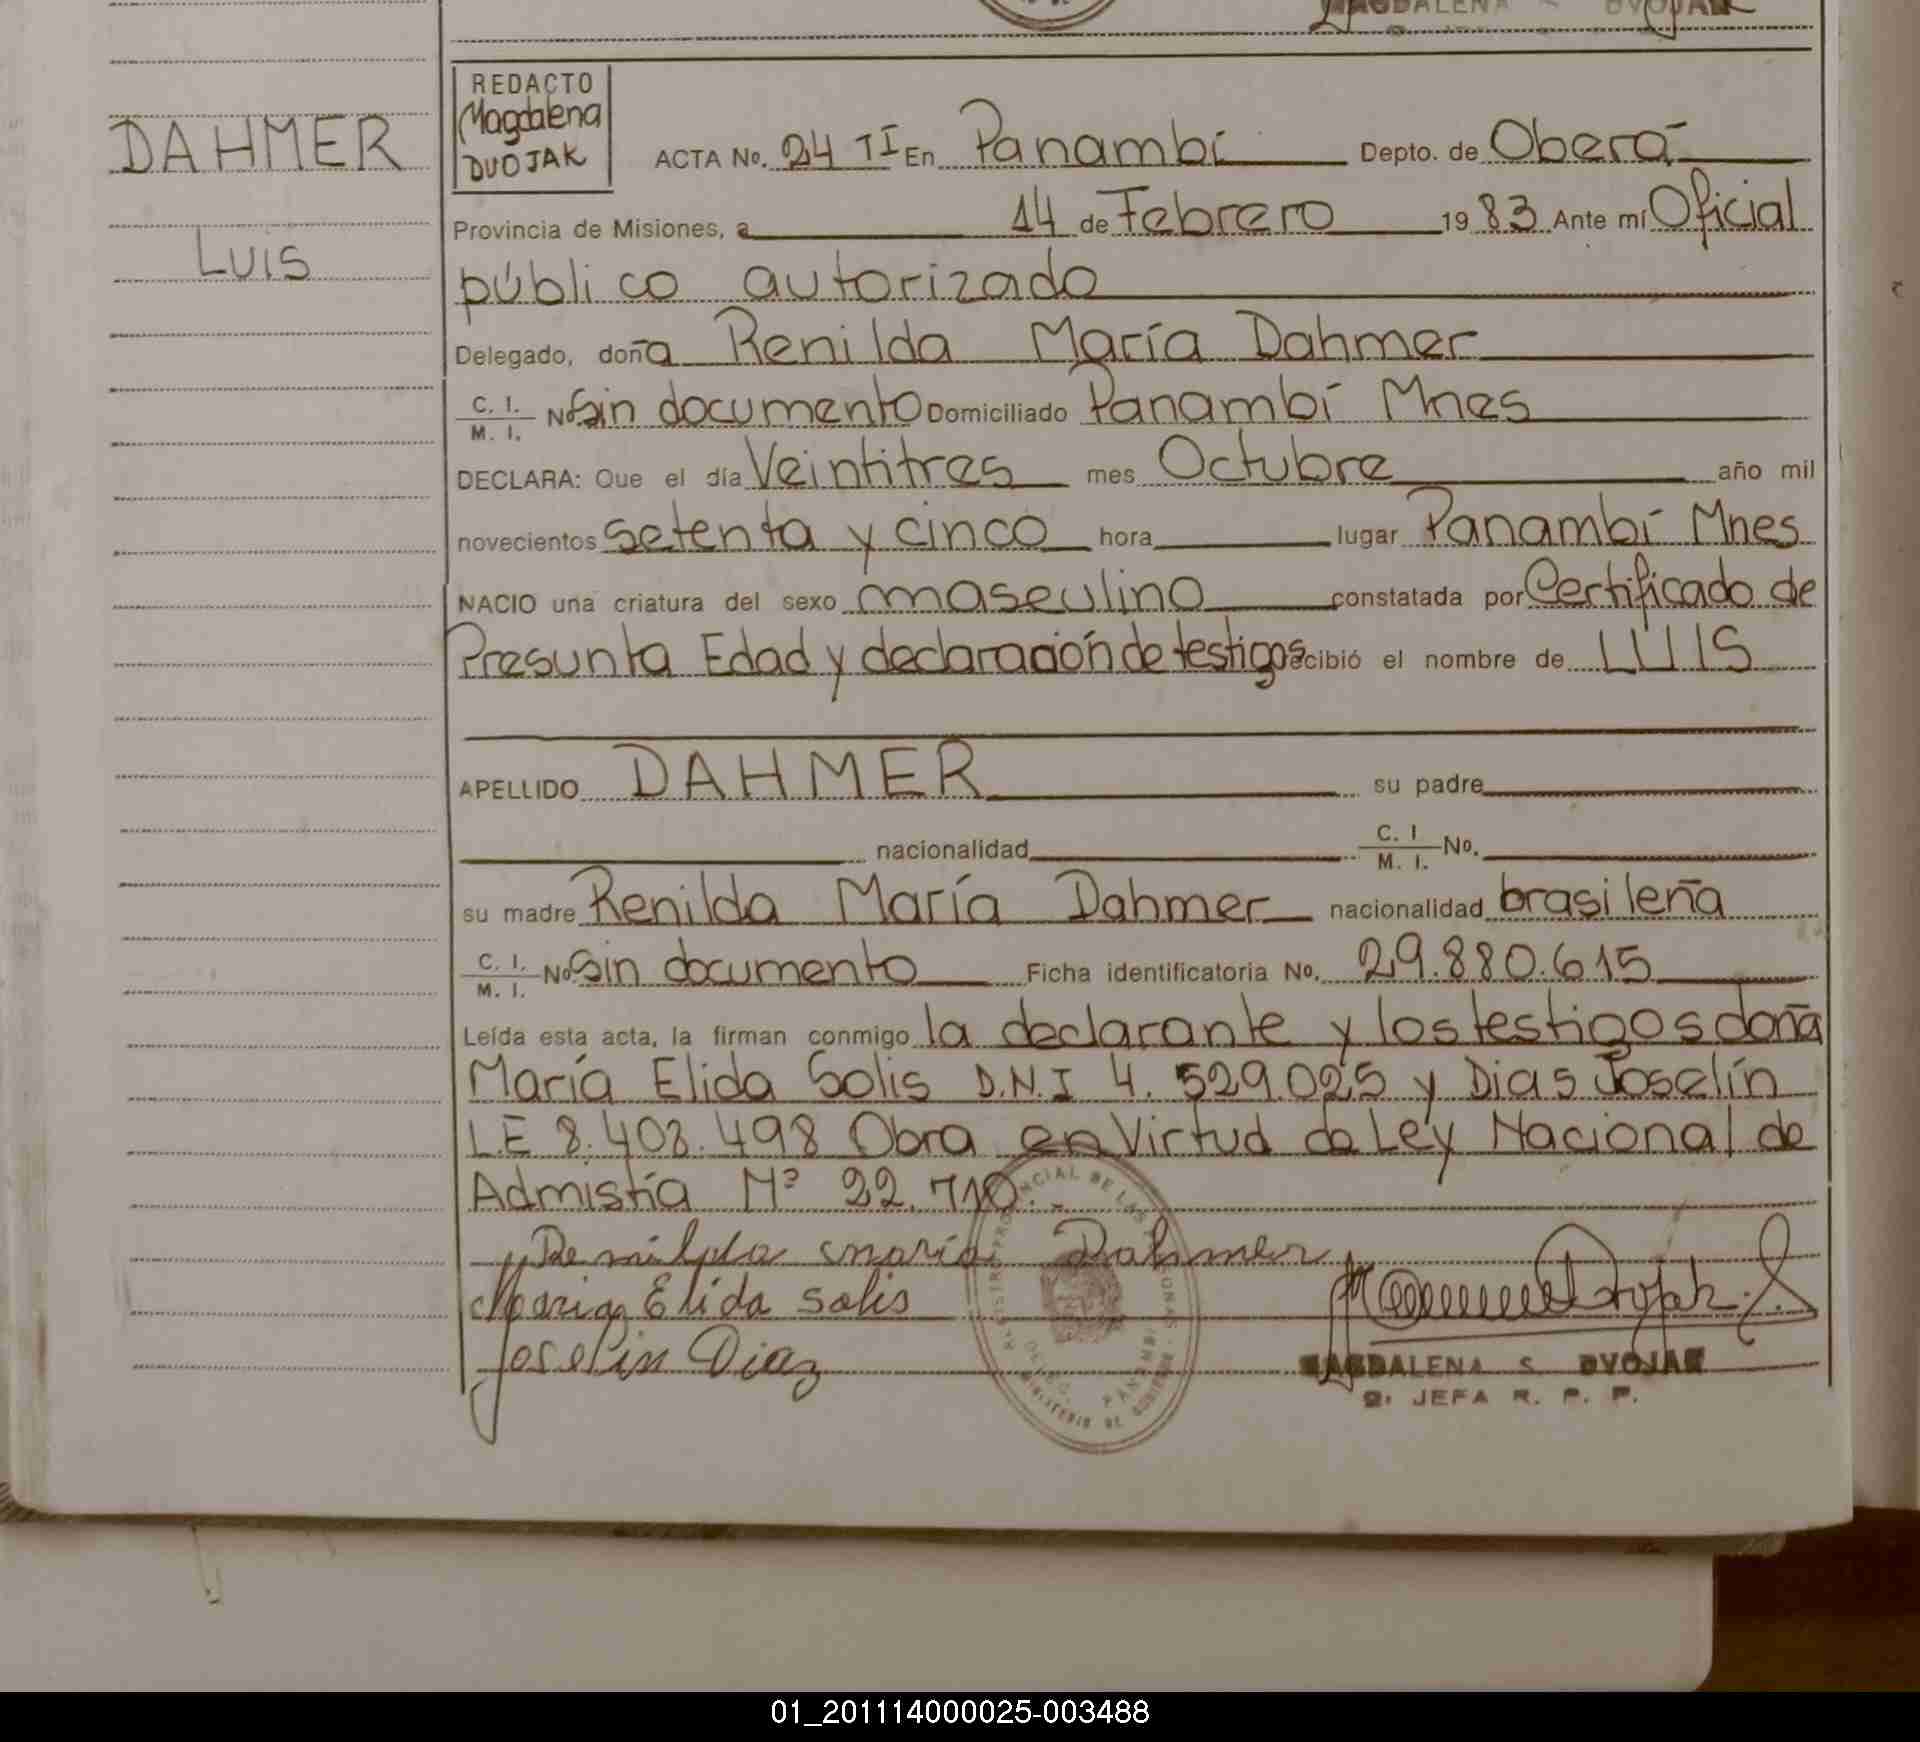 MAGDALENA S DVOJAK
REDACTO
Magdalena
DVOJAK
DAHMER
LUIS
ACTA No. 24 TI En Panambí Depto. de Oberá
Provincia de Misiones, a 14 de Febrero 1983 Ante mí Oficial
público autorizado
Delegado, doña Renilda María Dahmer
C. I. / M. I. No Sin documento Domiciliado Panambí Mnes
DECLARA: Que el día Veintitres mes Octubre año mil
novecientos setenta y cinco hora lugar Panambí Mnes
NACIO una criatura del sexo masculino constatada por Certificado de
Presunta Edad y declaración de testigos recibió el nombre de LUIS
APELLIDO DAHMER su padre
nacionalidad C. I / M. I. No.
su madre Renilda María Dahmer nacionalidad brasileña
C. I. / M. I. No Sin documento Ficha identificatoria No. 29.880.615
Leída esta acta, la firman conmigo la declarante y los testigos doña
María Elida Solis D.N.I 4.529.025 y Dias Joselín
L.E 8.403.498 Obra en Virtud de Ley Nacional de
Admistía Nº 22.710.-
Renilda maria Dahmer
Maria Elida Solis
Joselin Diaz
MAGDALENA S. DVOJAK
2ª JEFA R. P. P.
01_201114000025-003488